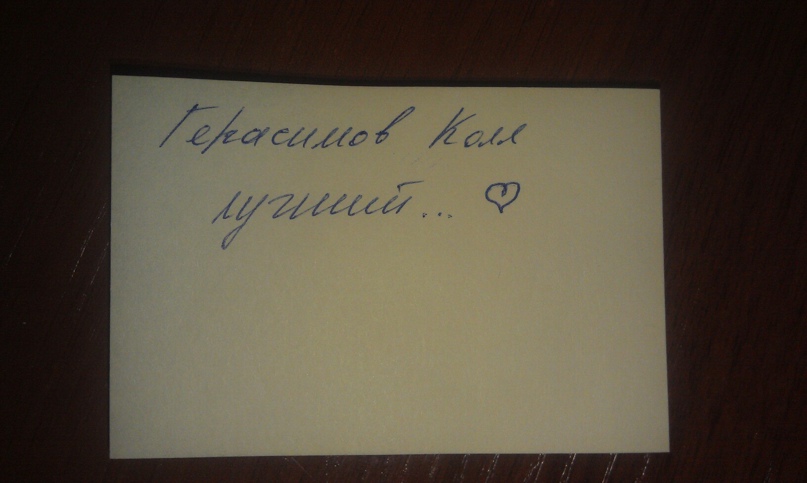 Герасимов Коля
лучший... ♡